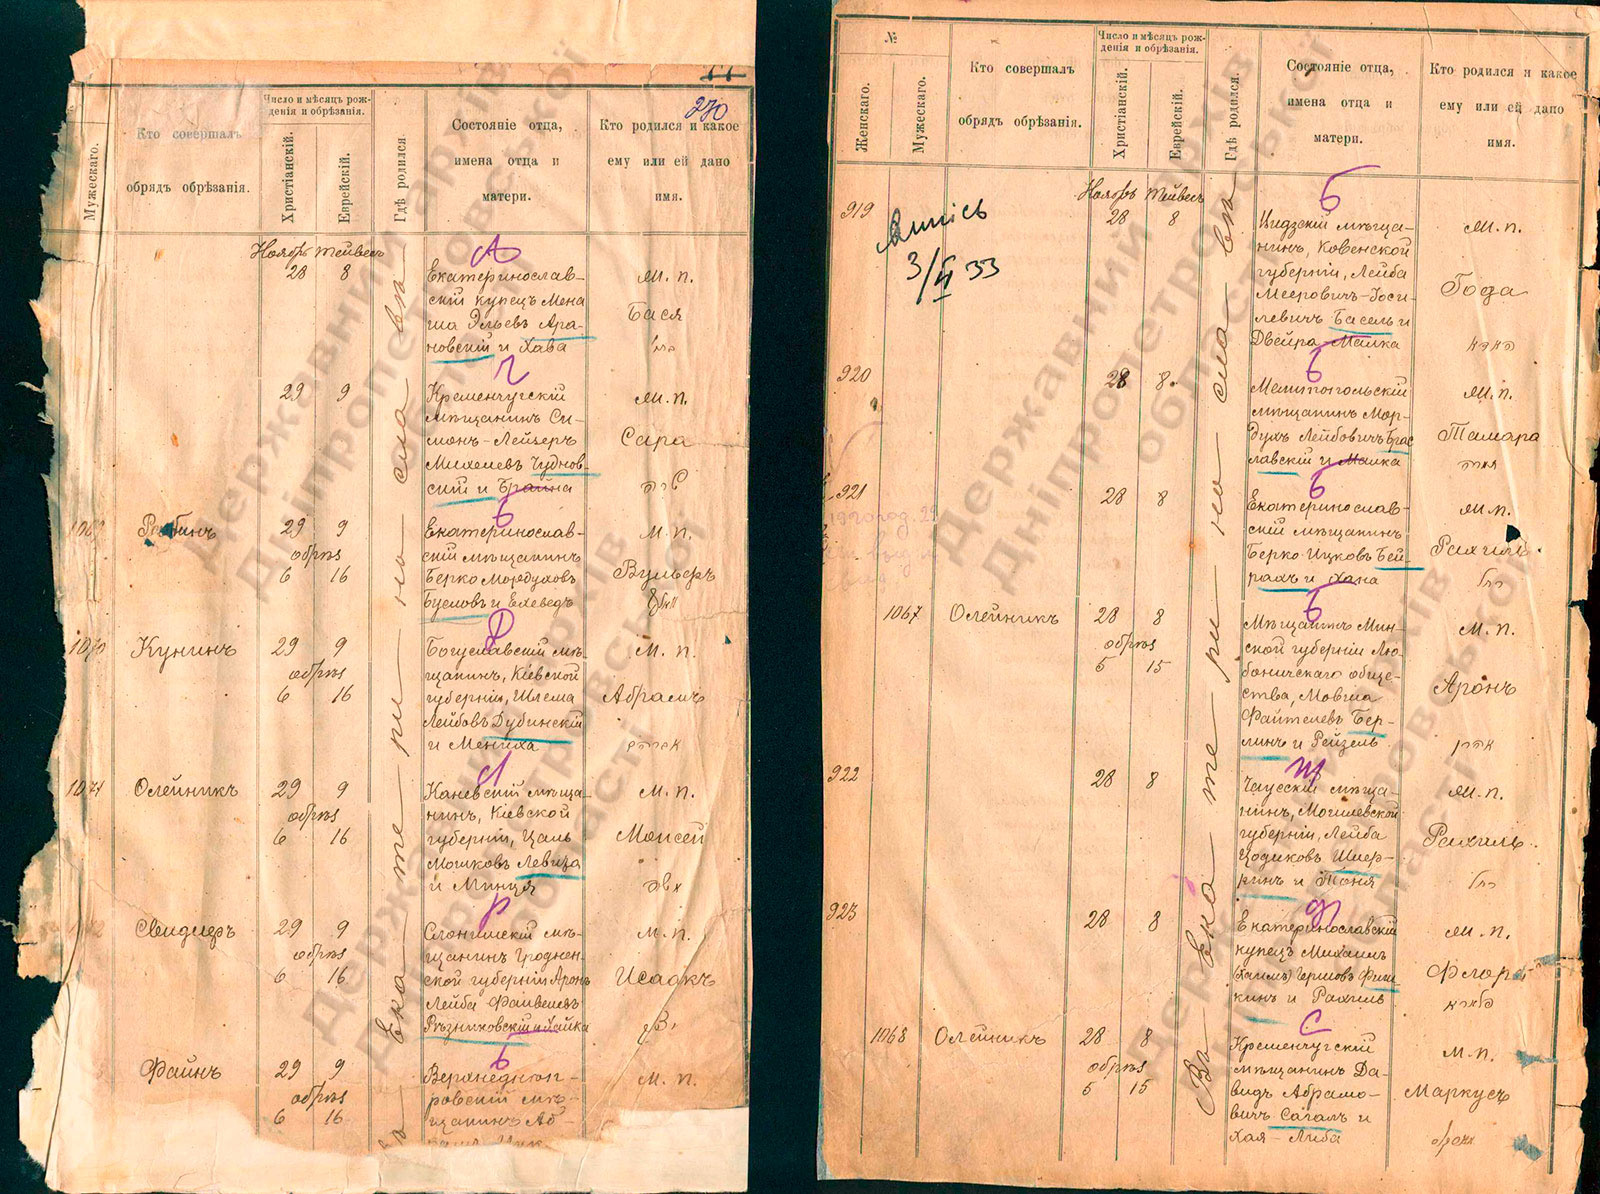 270
Мужескаго.
Кто совершалъ
обрядъ обрѣзанія.
Число и мѣсяцъ рож-
денія и обрѣзанія.
Христіанскій.
Еврейскій.
Гдѣ родился.
Состояніе отца,
имена отца и
матери.
Кто родился и какое
ему или ей дано
имя.
Ноябрь Тейвесъ
28 8
Екатеринослав-
скій купецъ Мена
ша Эльевъ Ара-
новскій и Хава
М. п.
Бася
29 9
Кременчугскій
мѣщанинъ Си-
монъ-Лейзеръ
Михелевъ Чуднов-
скій и Брайна
М. п.
Сара
1069 Рабинъ 29 9
обрѣз
6 16
Екатеринослав-
скій мѣщанинъ
Берко Мордуховъ
Бусловъ и Ехеведъ
М. п.
Вульфъ
1070 Кунинъ 29 9
обрѣз
6 16
Богуславскій мѣ-
щанинъ, Кіевской
губерніи, Шлема
Лейбовъ Дубинскій
и Мениха
М. п.
Абрамъ
1071 Олейникъ 29 9
обрѣз
6 16
Каневскій мѣща-
нинъ, Кіевской
губерніи, Цаль
Мошковъ Левица
и Минця
М. п.
Моисей
Свидлеръ 29 9
обрѣз
6 16
Слонимскій мѣ-
щанинъ Гроднен-
ской губерніи Аронъ
Лейба Файвелевъ
Рѣзниковскій и Хайка
М. п.
Исаакъ
Файнъ 29 9
обрѣз
6 16
Верхнеднѣп-
ровскій мѣ-
щанинъ Аб-
М. п.
Въ Ека-те-ри-но-сла-вѣ
№
Женскаго.
Мужескаго.
Кто совершалъ
обрядъ обрѣзанія.
Число и мѣсяцъ рож-
денія и обрѣзанія.
Христіанскій.
Еврейскій.
Гдѣ родился.
Состояніе отца,
имена отца и
матери.
Кто родился и какое
ему или ей дано
имя.
Ноябрь Тейвесъ
919 28 8
3/II 33
Видзскій мѣща-
нинъ, Ковенской
губерніи, Лейба
Мееровичъ-Іоси-
левичъ Басель и
Двейра-Малка
М. п.
Года
920 28 8
Мелитопольскій
мѣщанинъ Мор-
духъ Лейбовичъ Брас
лавскій и Малка
М. п.
Тамара
921 28 8
Екатеринослав-
скій мѣщанинъ
Берко Ицковъ Бей-
рахъ и Хана
М. п.
Рахиль
1067 Олейникъ 28 8
обрѣз
5 15
Мѣщанинъ Мин-
ской губерніи Лю-
боничскаго обще-
ства, Мовша
Файтелевъ Бер-
линъ и Рейзель
М. п.
Аронъ
922 28 8
Чаусскій мѣща-
нинъ, Могилевской
губерніи, Лейба
Цодиковъ Шмер-
кинъ и Тоня
М. п.
Рахиль
923 28 8
Екатеринославскій
купецъ Михаилъ
(Хаимъ) Гершовъ Фиш-
кинъ и Рахиль
М. п.
Флора
1068 Олейникъ 28 8
обрѣз
5 15
Кременчугскій
мѣщанинъ Да-
видъ Абрамо-
вичъ Сагалъ и
Хая-Либа
М. п.
Маркусъ
Въ Ека-те-ри-но-сла-вѣ
Державний архів
Дніпропетровської
області